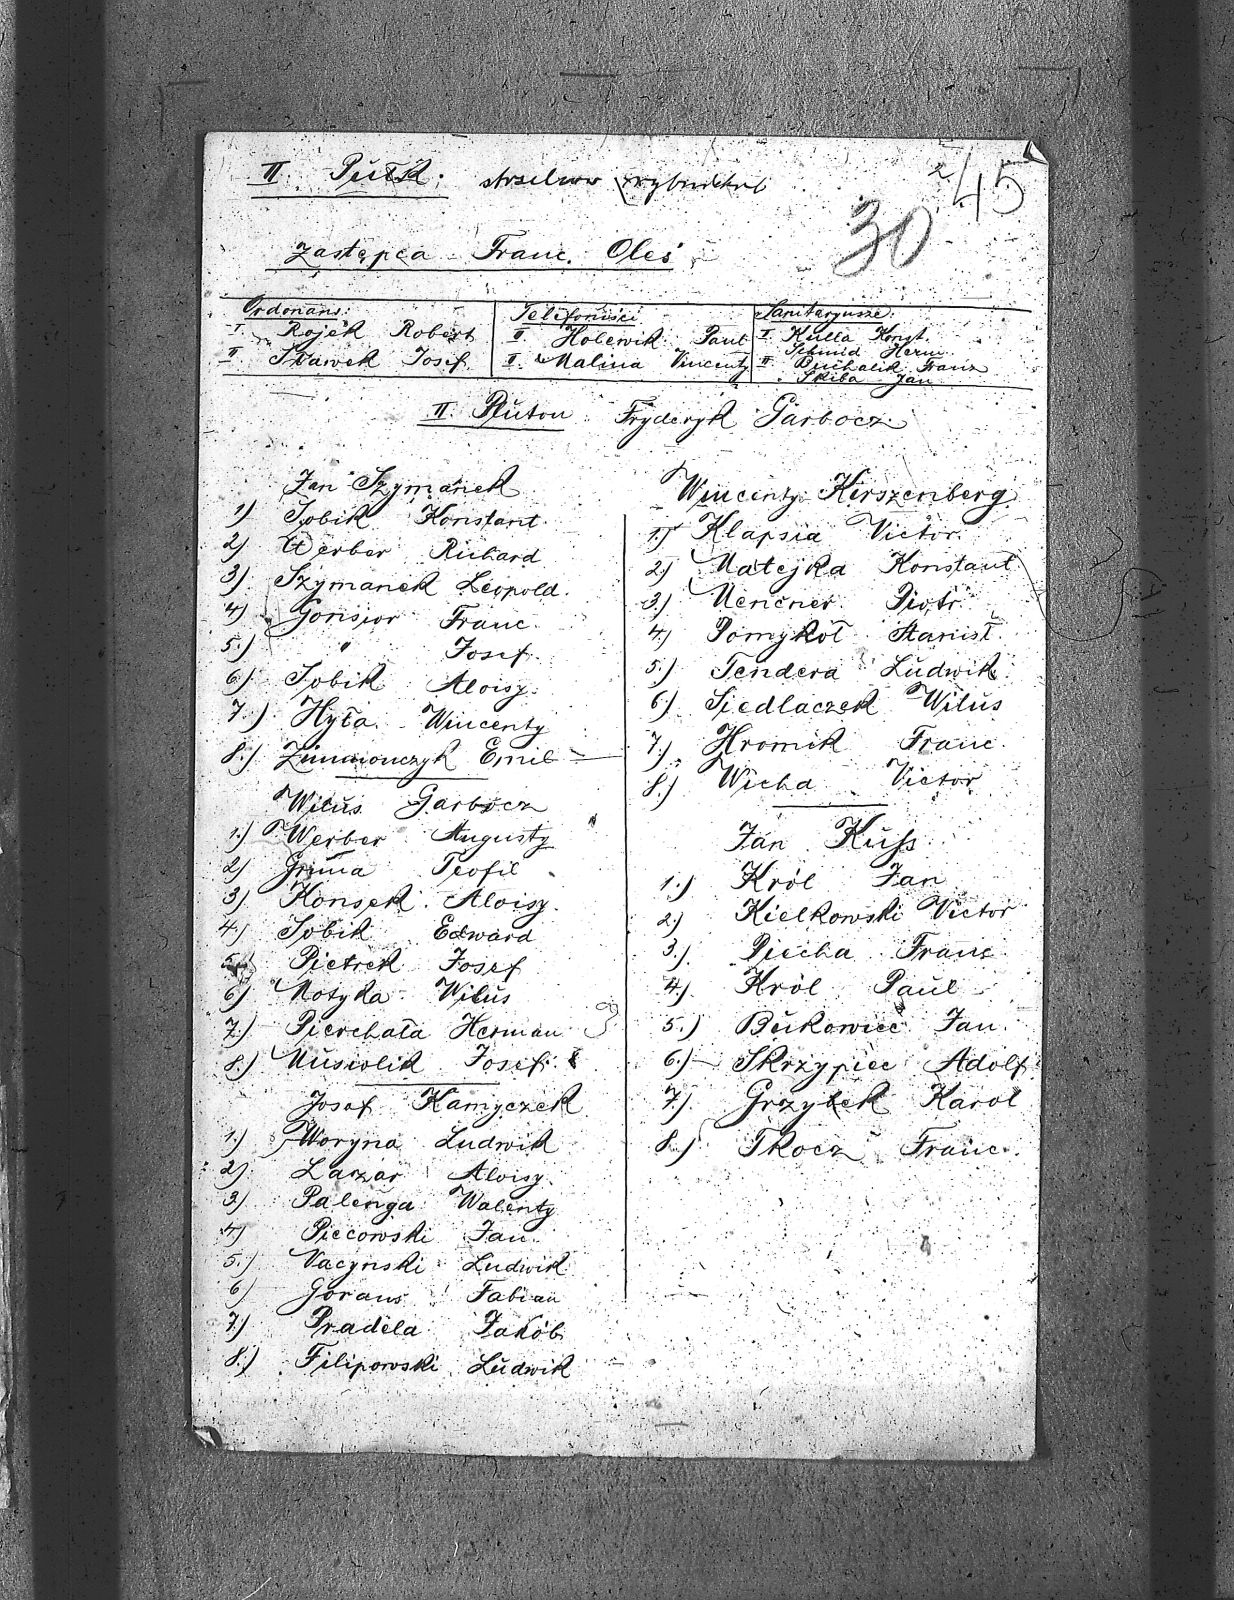 45
II. Pułk. strzelców rybnickich
30
Zastępca Franc. Oleś
Ordonans:
I. Rojek Robert
II. Sławek Josef
Telefoniści
II. Holewik Paul
II. Malina Vincenty
Sanitaryusze:
I Kulla Konst.
Schmid Herm.
II Buchalik Franz
Skiba Jan
II. Pluton Fryderyk Garbocz
Jan Szymanek
1) Sobik Konstant.
2) Werber Richard
3) Szymanek Leopold.
4) Gonsior Franc.
5.) " Josef.
6) Sobik Aloisy.
7.) Hyła Wincenty
8.) Zimmonczyk Emil
Wiluś Garbocz
1.) Werber Augusty
2) Teofil
3) Konsek Aloisy.
4.) Sobik Edward
5. Pietrek Josef
6) Motyka Wiluś
7.) Pierchała Herman
8.) Musiolik Josef.
Josef Kamyczek
1.) Woryna Ludwik
2) Lazar Aloisy.
3) Palenga Walenty
4) Piecowski Jan.
5.) Vacynski Ludwik
6) Goraus Fabian
7.) Pradela Jakób
8.) Filipowski Ludwik
Wincenty Kirszenberg
1.) Klapsia Victor.
2) Matejka Konstant
3.) Nencner Piotr.
4.) Pomykoł Stanisł.
5.) Tendera Ludwik
6.) Siedlaczek Wiluś
7.) Hromik Franc.
8.) Wicha Victor
Jan Kuss
1.) Król Jan
2) Kielkowski Victor
3.) Piecha Franc
4.) Król Paul
5.) Bukowiec Jan.
6.) Skrzypiec Adolf.
7.) Grzybek Karol
8.) Tkocz Franc.